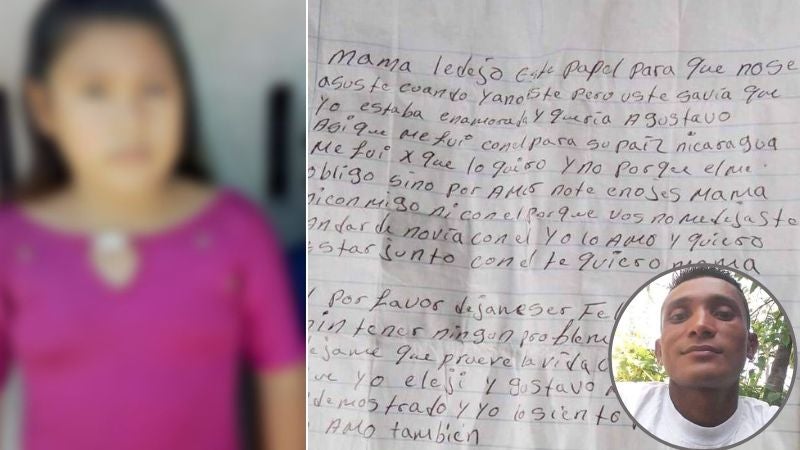 mama ledejo este papel para que no se
asuste cuando ya no iste pero uste savia que
yo estaba enamorada y queria A gustavo
Asi que me fui con el para su paiz nicaragua
me fui x que lo quiro y no porque el me.
obligo sino por AMOR note enojes mama
ni con migo ni con el porque vos no me dejaste
andar de novia con el yo lo AMO y quiero
estar junto con el te quiero mama
por favor dejame ser Fe
sin tener ningun problem
dejame que prueve la vida
que yo eleji y gustavo
demostrado y yo lo siento
AMO también